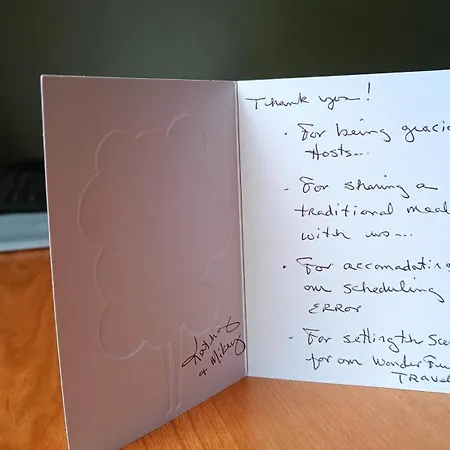 Thank you!
- For being gracio
Hosts...
- For sharing a
traditional meal
with us...
- For accomadating
our scheduling
ERROR
- For setting th Sce
for our Wonderfu
TRAVEL
+ Mikey